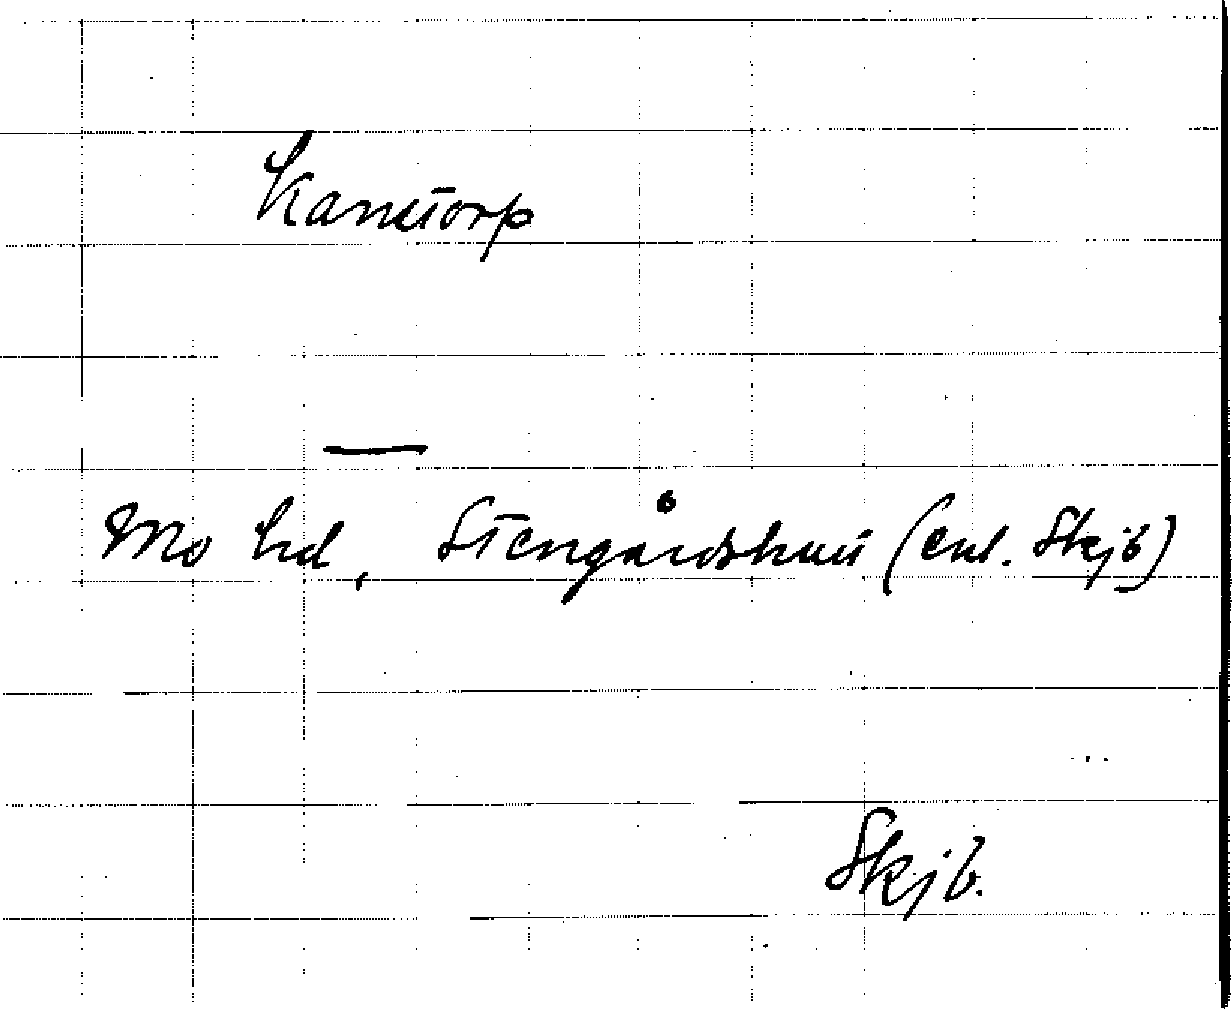 Kanstorp
—
Mo hd, Stengårdshult (enl. Skjb)
Skjb.